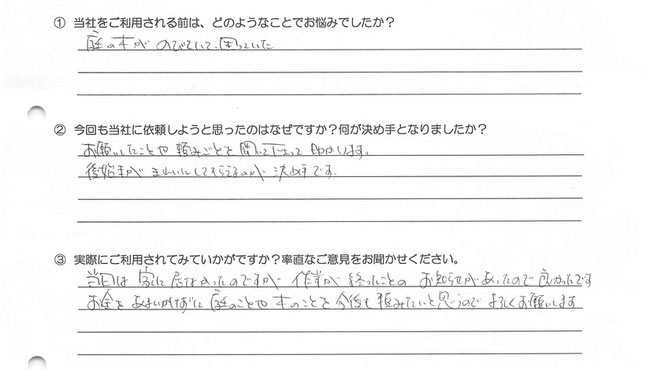 ① 当社をご利用される前は、どのようなことでお悩みでしたか？
庭の木がのびていて困っていた
② 今回も当社に依頼しようと思ったのはなぜですか？何が決め手となりましたか？
お願いしたことや頼みごとを聞いて下さって助かります。
後始末がきれいにしてもらえるのが決め手です。
③ 実際にご利用されてみていかがですか？率直なご意見をお聞かせください。
当日は家に居なかったのですが作業が終ったことのお知らせがあったので良かったです
お金をあまりかけずに庭のことや木のことを今後も頼みたいと思うのでよろしくお願いします